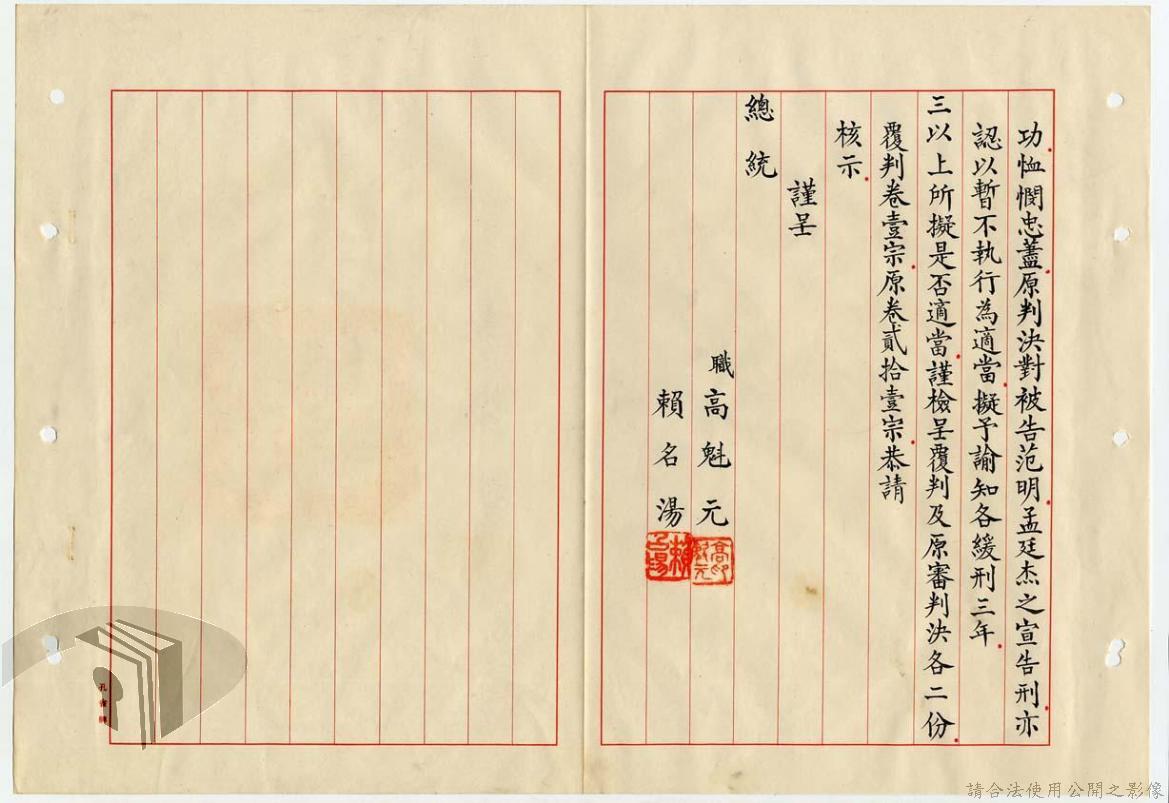 功恤憫忠藎原判決對被告范明孟廷杰之宣告刑亦
認以暫不執行為適當擬予諭知各緩刑三年
三以上所擬是否適當謹檢呈覆判及原審判決各二份
覆判卷壹宗原卷貳拾壹宗恭請
核示
謹呈
總統
職高魁元
賴名湯
高魁元印
賴名湯
請合法使用公開之影像